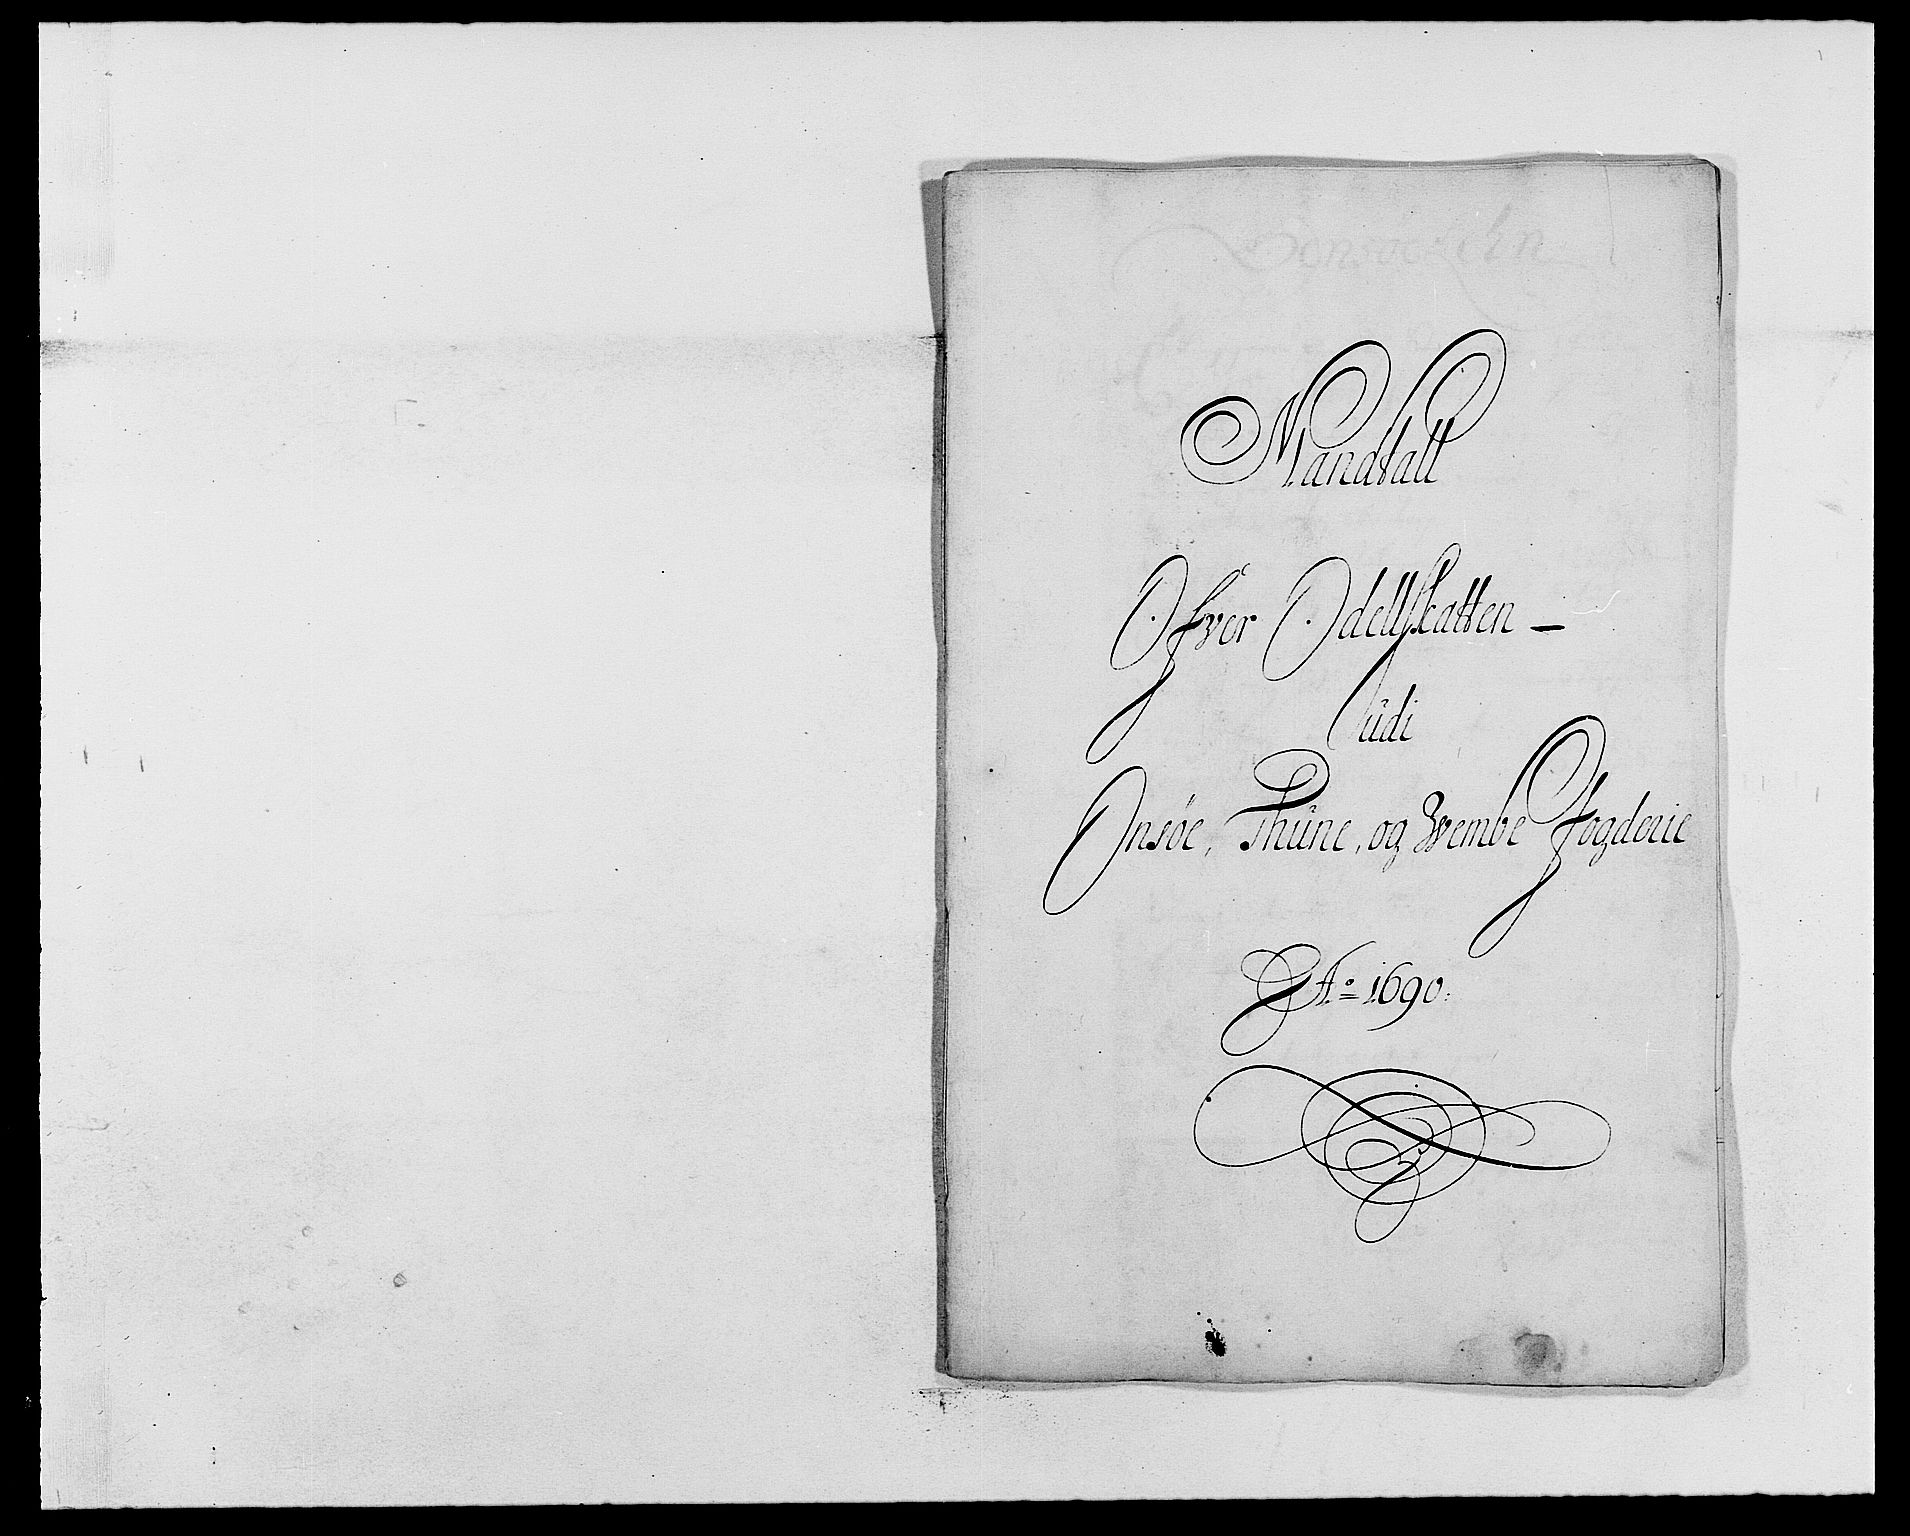 Mandtall
Ofver Odellskatten –
udi
Onsøe, Thune, og Wembe Fogderie
Ao 1690.